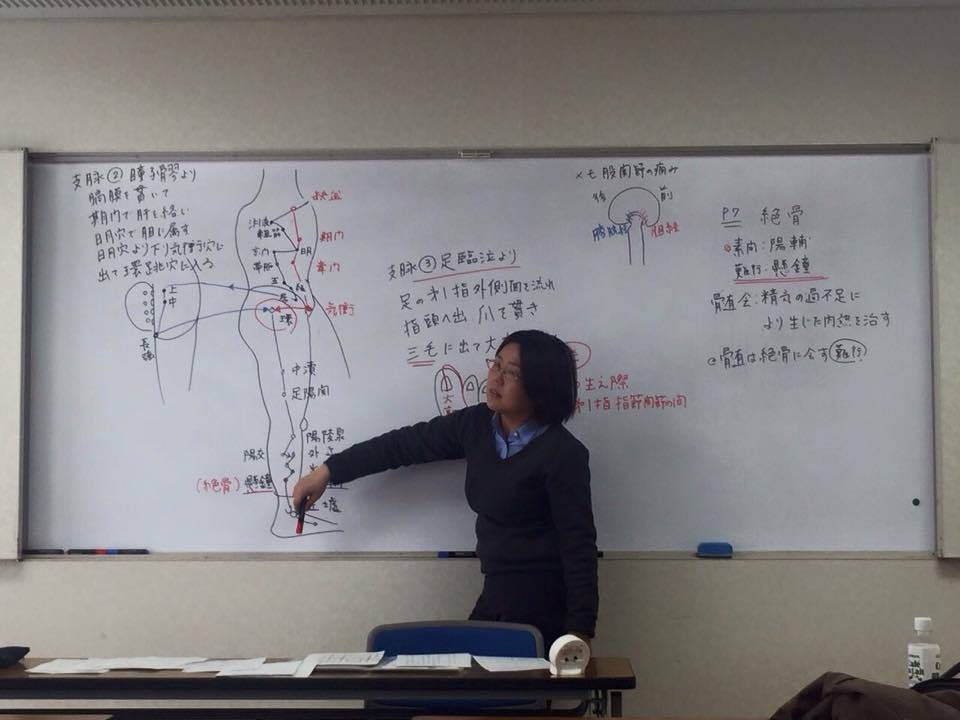 支脈②瞳子髎より
脇腹を貫いて
期門で肝を絡い
日月穴で胆に属す
日月穴より下り気衝穴に
出て環跳穴に入る
上
中
長強
缺盆
淵腋
輒筋
期門
京門
日月
帯脈
章門
五
気衝
環
中瀆
足陽関
陽陵泉
陽交
外
(絶骨)懸鐘
墟
支脈③足臨泣より
足の第1指外側面を流れ
指頭へ出、爪を貫き
三毛に出て大
生え際
第1指指節関節の間
メモ股関節の痛み
後
前
膀胱経
胆経
P7 絶骨
素問:陽輔
難経:懸鐘
骨髄会:精気の過不足に
より生じた内熱を治す
骨髄は絶骨に会す(難経)